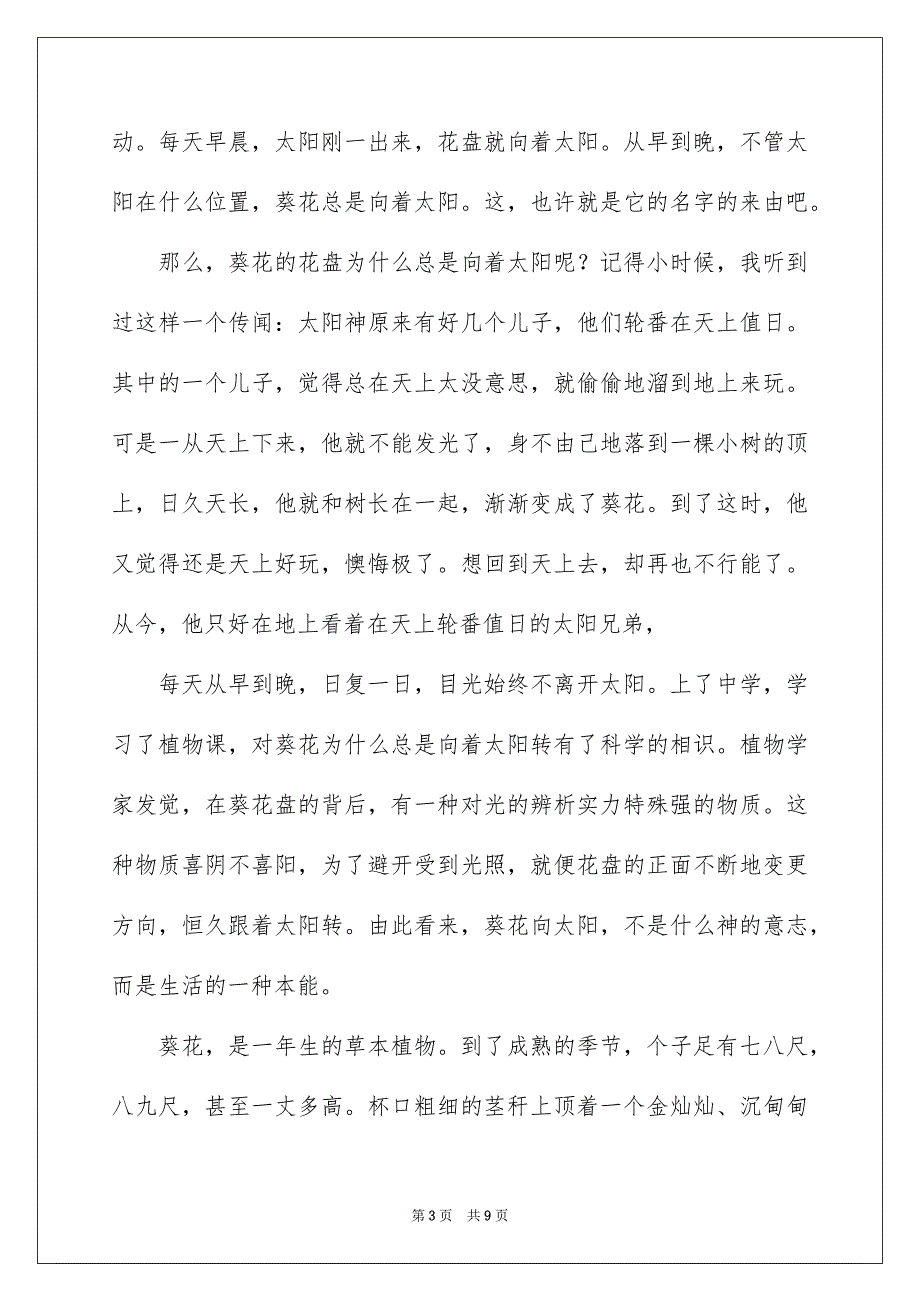 动。每天早晨，太阳刚一出来，花盘就向着太阳。从早到晚，不管太
阳在什么位置，葵花总是向着太阳。这，也许就是它的名字的来由吧。
那么，葵花的花盘为什么总是向着太阳呢？记得小时候，我听到
过这样一个传闻：太阳神原来有好几个儿子，他们轮番在天上值日。
其中的一个儿子，觉得总在天上太没意思，就偷偷地溜到地上来玩。
可是一从天上下来，他就不能发光了，身不由己地落到一棵小树的顶
上，日久天长，他就和树长在一起，渐渐变成了葵花。到了这时，他
又觉得还是天上好玩，懊悔极了。想回到天上去，却再也不行能了。
从今，他只好在地上看着在天上轮番值日的太阳兄弟，
每天从早到晚，日复一日，目光始终不离开太阳。上了中学，学
习了植物课，对葵花为什么总是向着太阳转有了科学的相识。植物学
家发觉，在葵花盘的背后，有一种对光的辨析实力特殊强的物质。这
种物质喜阴不喜阳，为了避开受到光照，就便花盘的正面不断地变更
方向，恒久跟着太阳转。由此看来，葵花向太阳，不是什么神的意志，
而是生活的一种本能。
葵花，是一年生的草本植物。到了成熟的季节，个子足有七八尺，
八九尺，甚至一丈多高。杯口粗细的茎秆上顶着一个金灿灿、沉甸甸
第 3 页 共 9 页